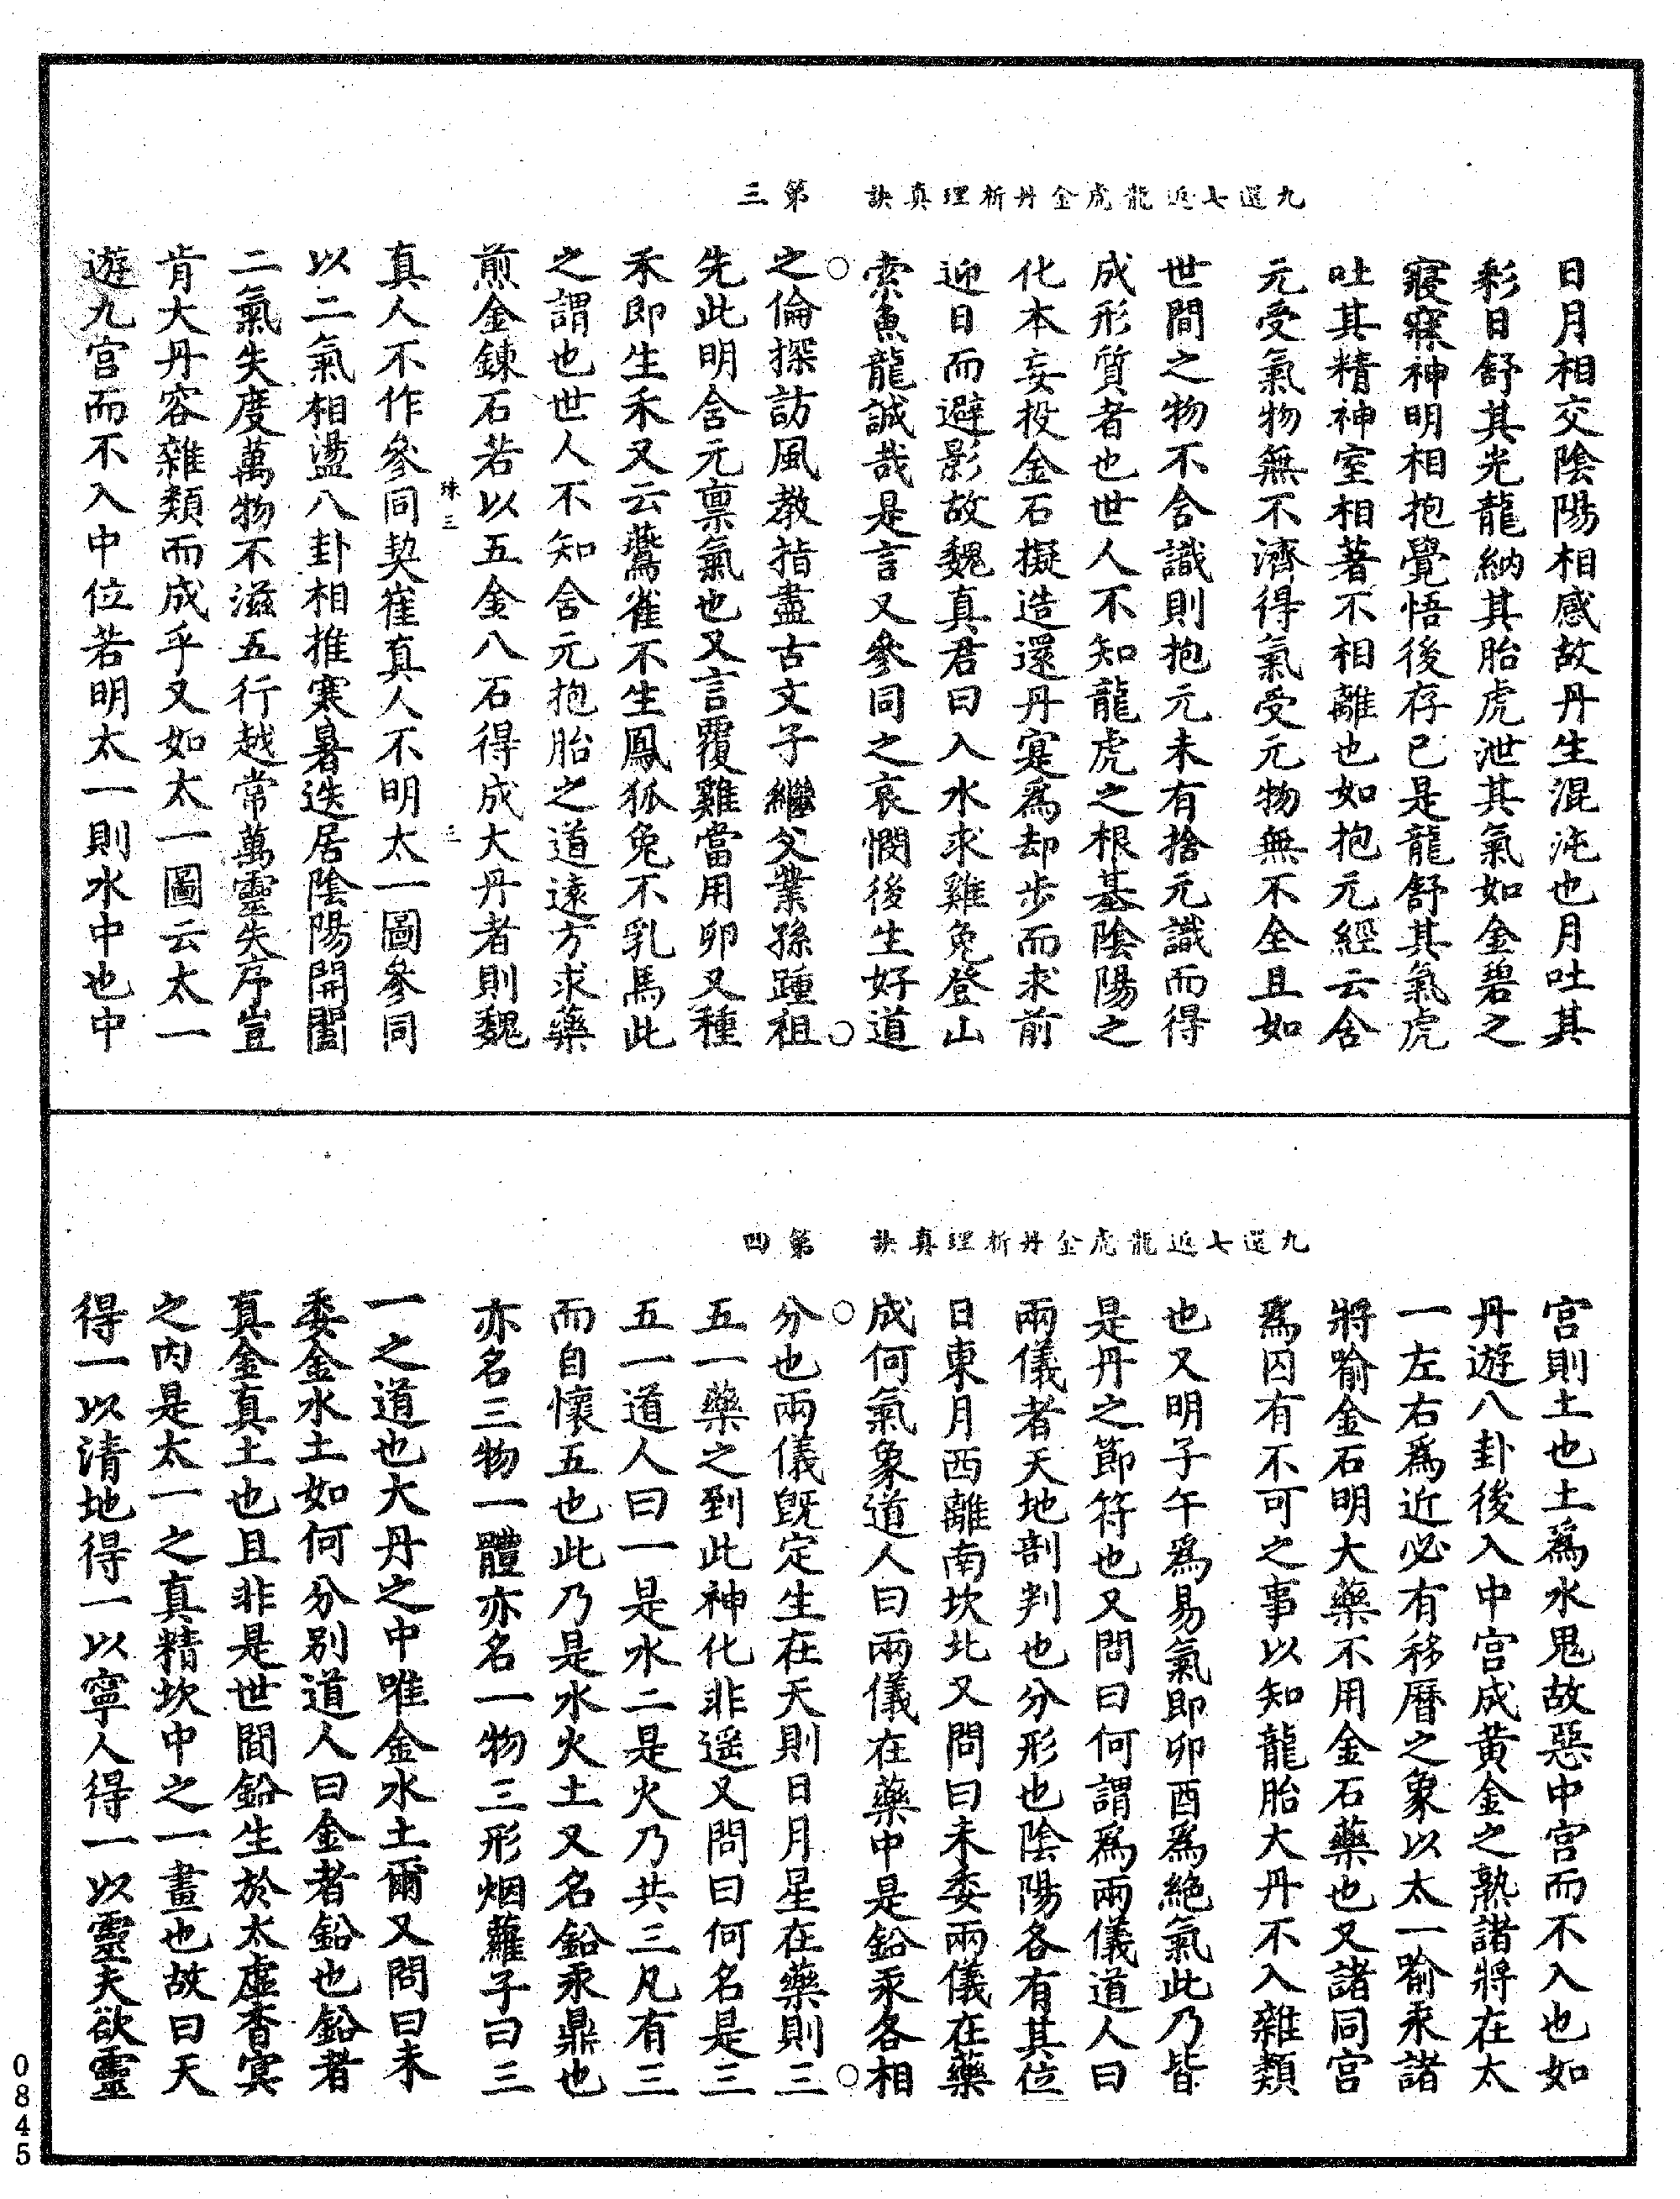 九還七返龍虎金丹析理真訣　第三
日月相交陰陽相感故丹生混沌也月吐其
彩日舒其光龍納其胎虎泄其氣如金碧之
寢寐神明相抱覺悟後存已是龍舒其氣虎
吐其精神室相著不相離也如抱元經云含
元受氣物無不濟得氣受元物無不全且如
世間之物不含識則抱元未有捨元識而得
成形質者也世人不知龍虎之根基陰陽之
化本妄投金石擬造還丹寔爲却步而求前
迎日而避影故魏真君曰入水求雞兔登山
索魚龍誠哉是言又參同之哀憫後生好道
之倫探訪風教指盡古文子繼父業孫踵祖
先此明含元禀氣也又言覆雞當用卵又種
禾即生禾又云鷰雀不生鳳狐兔不乳馬此
之謂也世人不知含元抱胎之道遠方求藥
煎金鍊石若以五金八石得成大丹者則魏
珠三　三
真人不作參同契崔真人不明太一圖參同
以二氣相盪八卦相推寒暑迭居陰陽開闔
二氣失度萬物不滋五行越常萬靈失序豈
肯大丹容雜類而成乎又如太一圖云太一
遊九宫而不入中位若明太一則水中也中
九還七返龍虎金丹析理真訣　第四
宫則土也土爲水鬼故惡中宫而不入也如
丹遊八卦後入中宫成黄金之熟諸將在太
一左右爲近必有移曆之象以太一喻汞諸
將喻金石明大藥不用金石藥也又諸同宫
爲囚有不可之事以知龍胎大丹不入雜類
也又明子午爲易氣即卯酉爲絶氣此乃皆
是丹之節符也又問曰何謂爲兩儀道人曰
兩儀者天地剖判也分形也陰陽各有其位
日東月西離南坎北又問曰未委兩儀在藥
成何氣象道人曰兩儀在藥中是鉛汞各相
分也兩儀旣定生在天則日月星在藥則三
五一藥之到此神化非遥又問曰何名是三
五一道人曰一是水二是火乃共三凡有三
而自懷五也此乃是水火土又名鉛汞鼎也
亦名三物一體亦名一物三形烟蘿子曰三
一之道也大丹之中唯金水土爾又問曰未
委金水土如何分别道人曰金者鉛也鉛者
真金真土也且非是世間鉛生於太虛杳㝠
之内是太一之真精坎中之一畫也故曰天
得一以清地得一以寧人得一以靈夫欲靈
0845